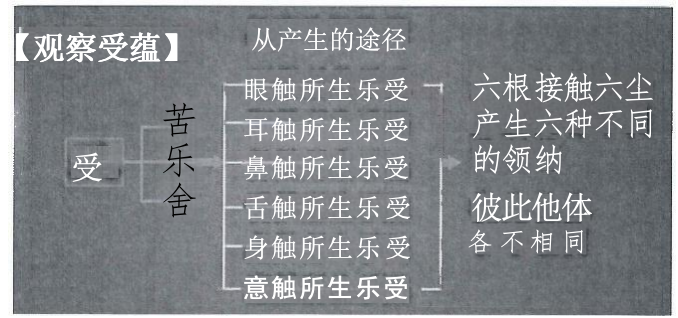 【观察受蕴】
从产生的途径
受
苦
乐
舍
眼触所生乐受
耳触所生乐受
鼻触所生乐受
舌触所生乐受
身触所生乐受
意触所生乐受
六根接触六尘
产生六种不同
的领纳
彼此他体
各不相同